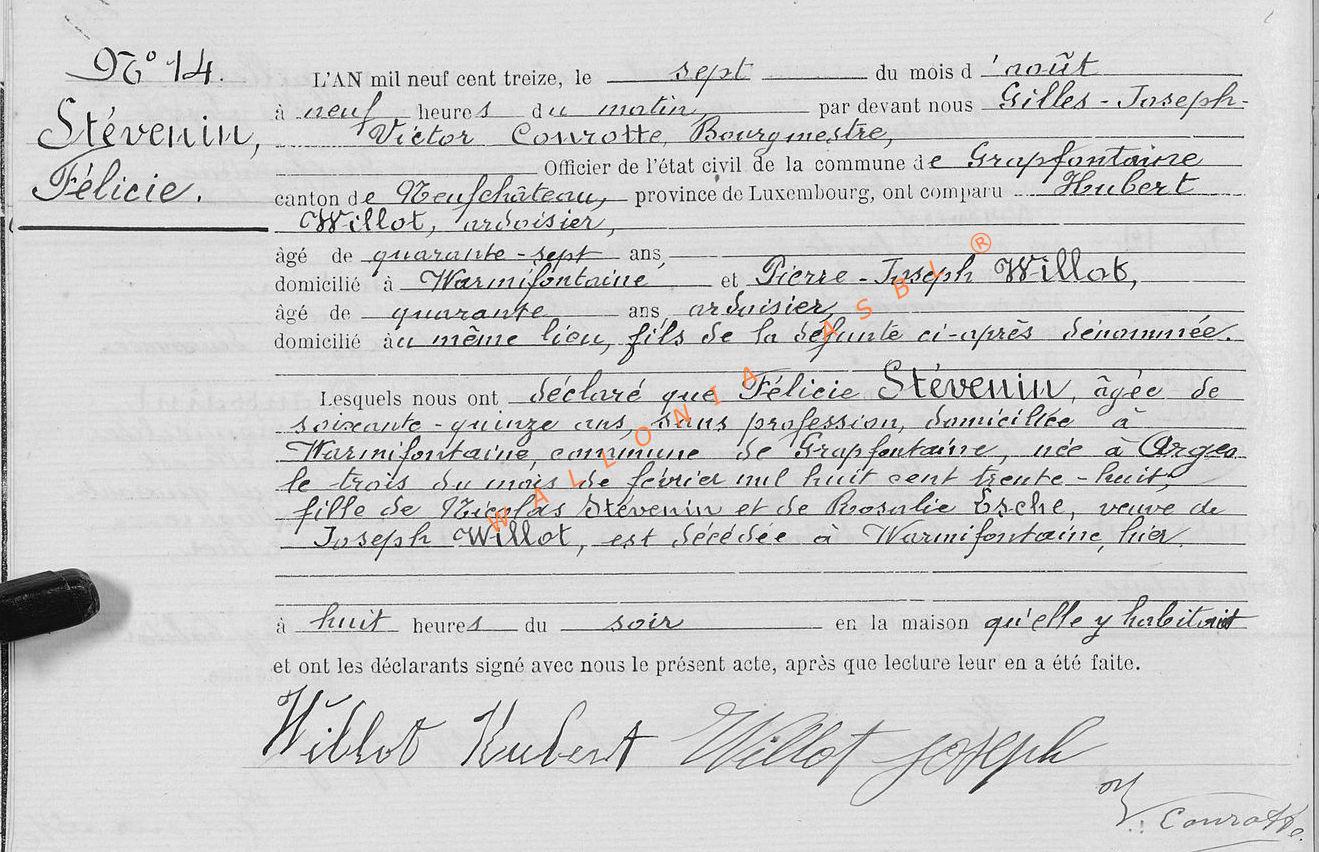 N° 14.
Stévenin,
Félicie.
L'AN mil neuf cent treize, le sept du mois d'août
à neuf heures du matin par devant nous Gilles-Joseph-
Victor Conrotte, Bourgmestre,
Officier de l'état civil de la commune de Grapfontaine
canton de Neufchâteau, province de Luxembourg, ont comparu Hubert
Willot, ardoisier,
âgé de quarante-sept ans
domicilié à Warmifontaine et Pierre-Joseph Willot,
âgé de quarante ans ardoisier,
domicilié au même lieu, fils de la défunte ci-après dénommée.
Lesquels nous ont déclaré que Félicie Stévenin, âgée de
soixante-quinze ans, sans profession, domiciliée à
Warmifontaine, commune de Grapfontaine, née à Orgeo
le trois du mois de février mil huit cent trente-huit,
fille de Nicolas Stévenin et de Rosalie Esche, veuve de
Joseph Willot, est décédée à Warmifontaine, hier
à huit heures du soir en la maison qu'elle y habitait
et ont les déclarants signé avec nous le présent acte, après que lecture leur en a été faite.
Willot Hubert Willot Joseph
Conrotte
WALLONIA ASBL ®